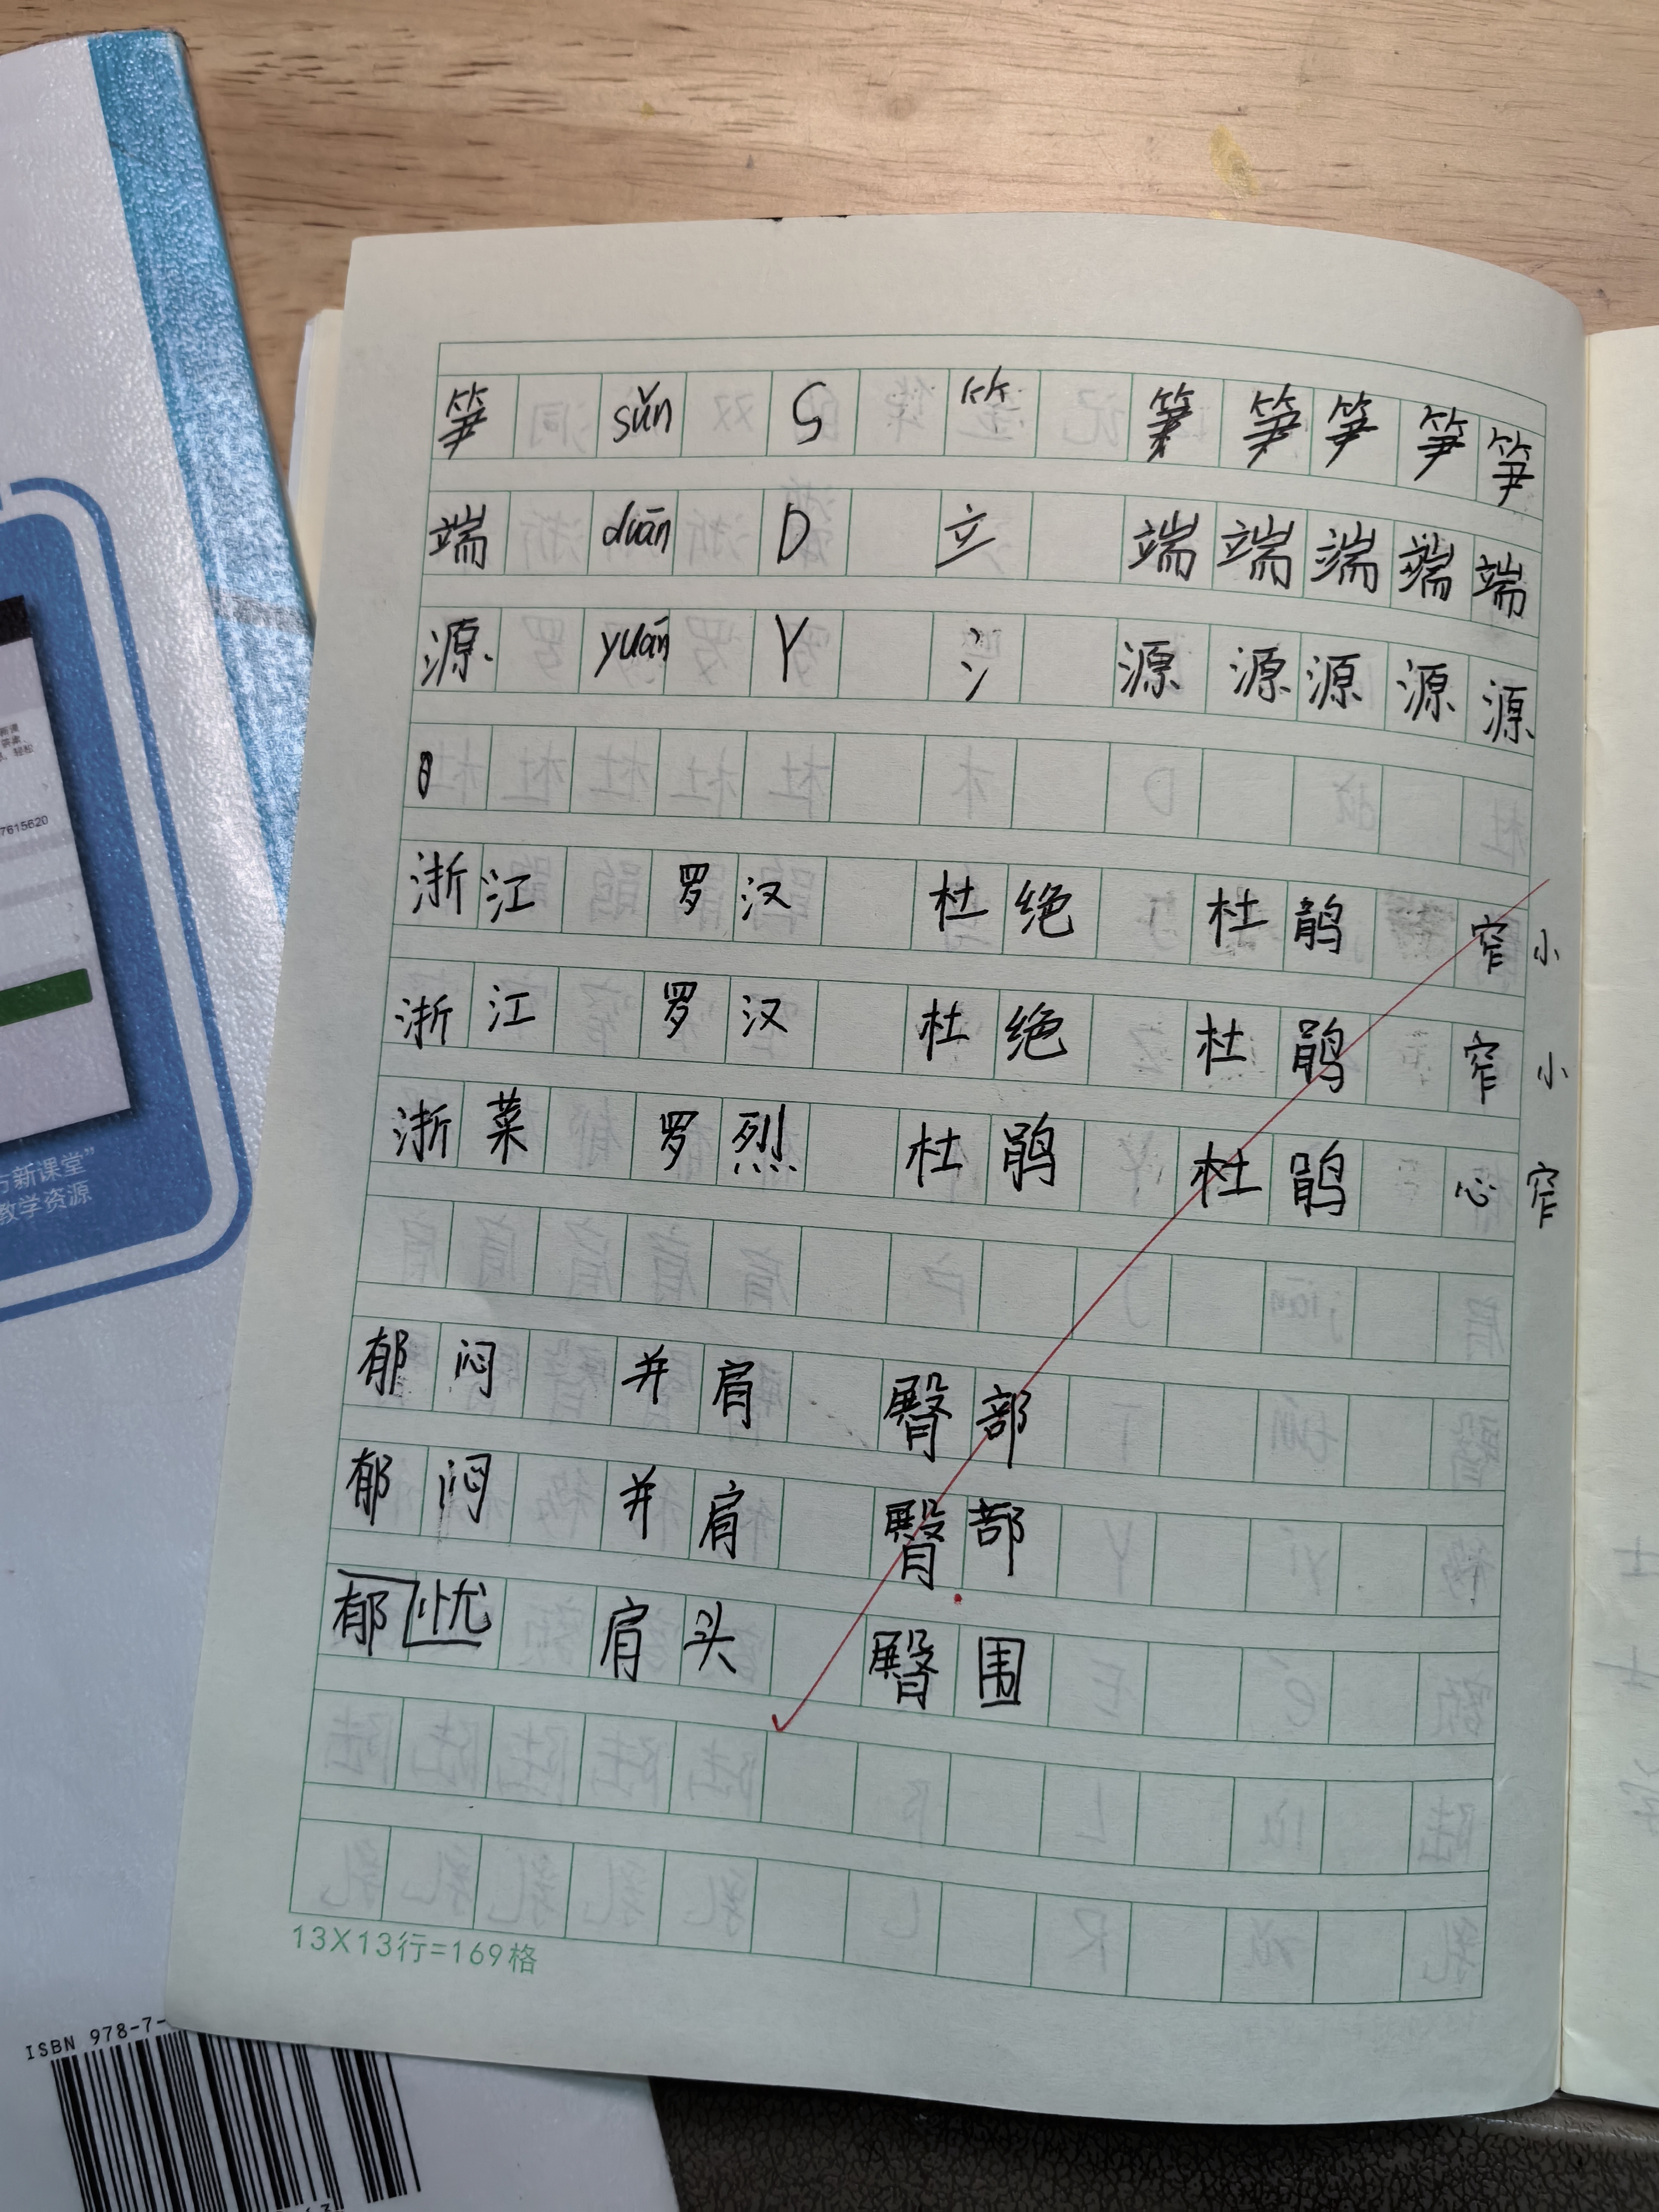 笋 sǔn S ⺮ 笋 笋 笋 笋 笋
端 duān D 立 端 端 端 端 端
源 yuán Y 氵 源 源 源 源 源
浙江 罗汉 杜绝 杜鹃 窄小
浙江 罗汉 杜绝 杜鹃 窄小
浙菜 罗烈 杜鹃 杜鹃 心窄
郁闷 并肩 臀部
郁闷 并肩 臀部
郁忧 肩头 臀围
13X13行=169格
7615620
方新课堂”
教学资源
ISBN 978-7-